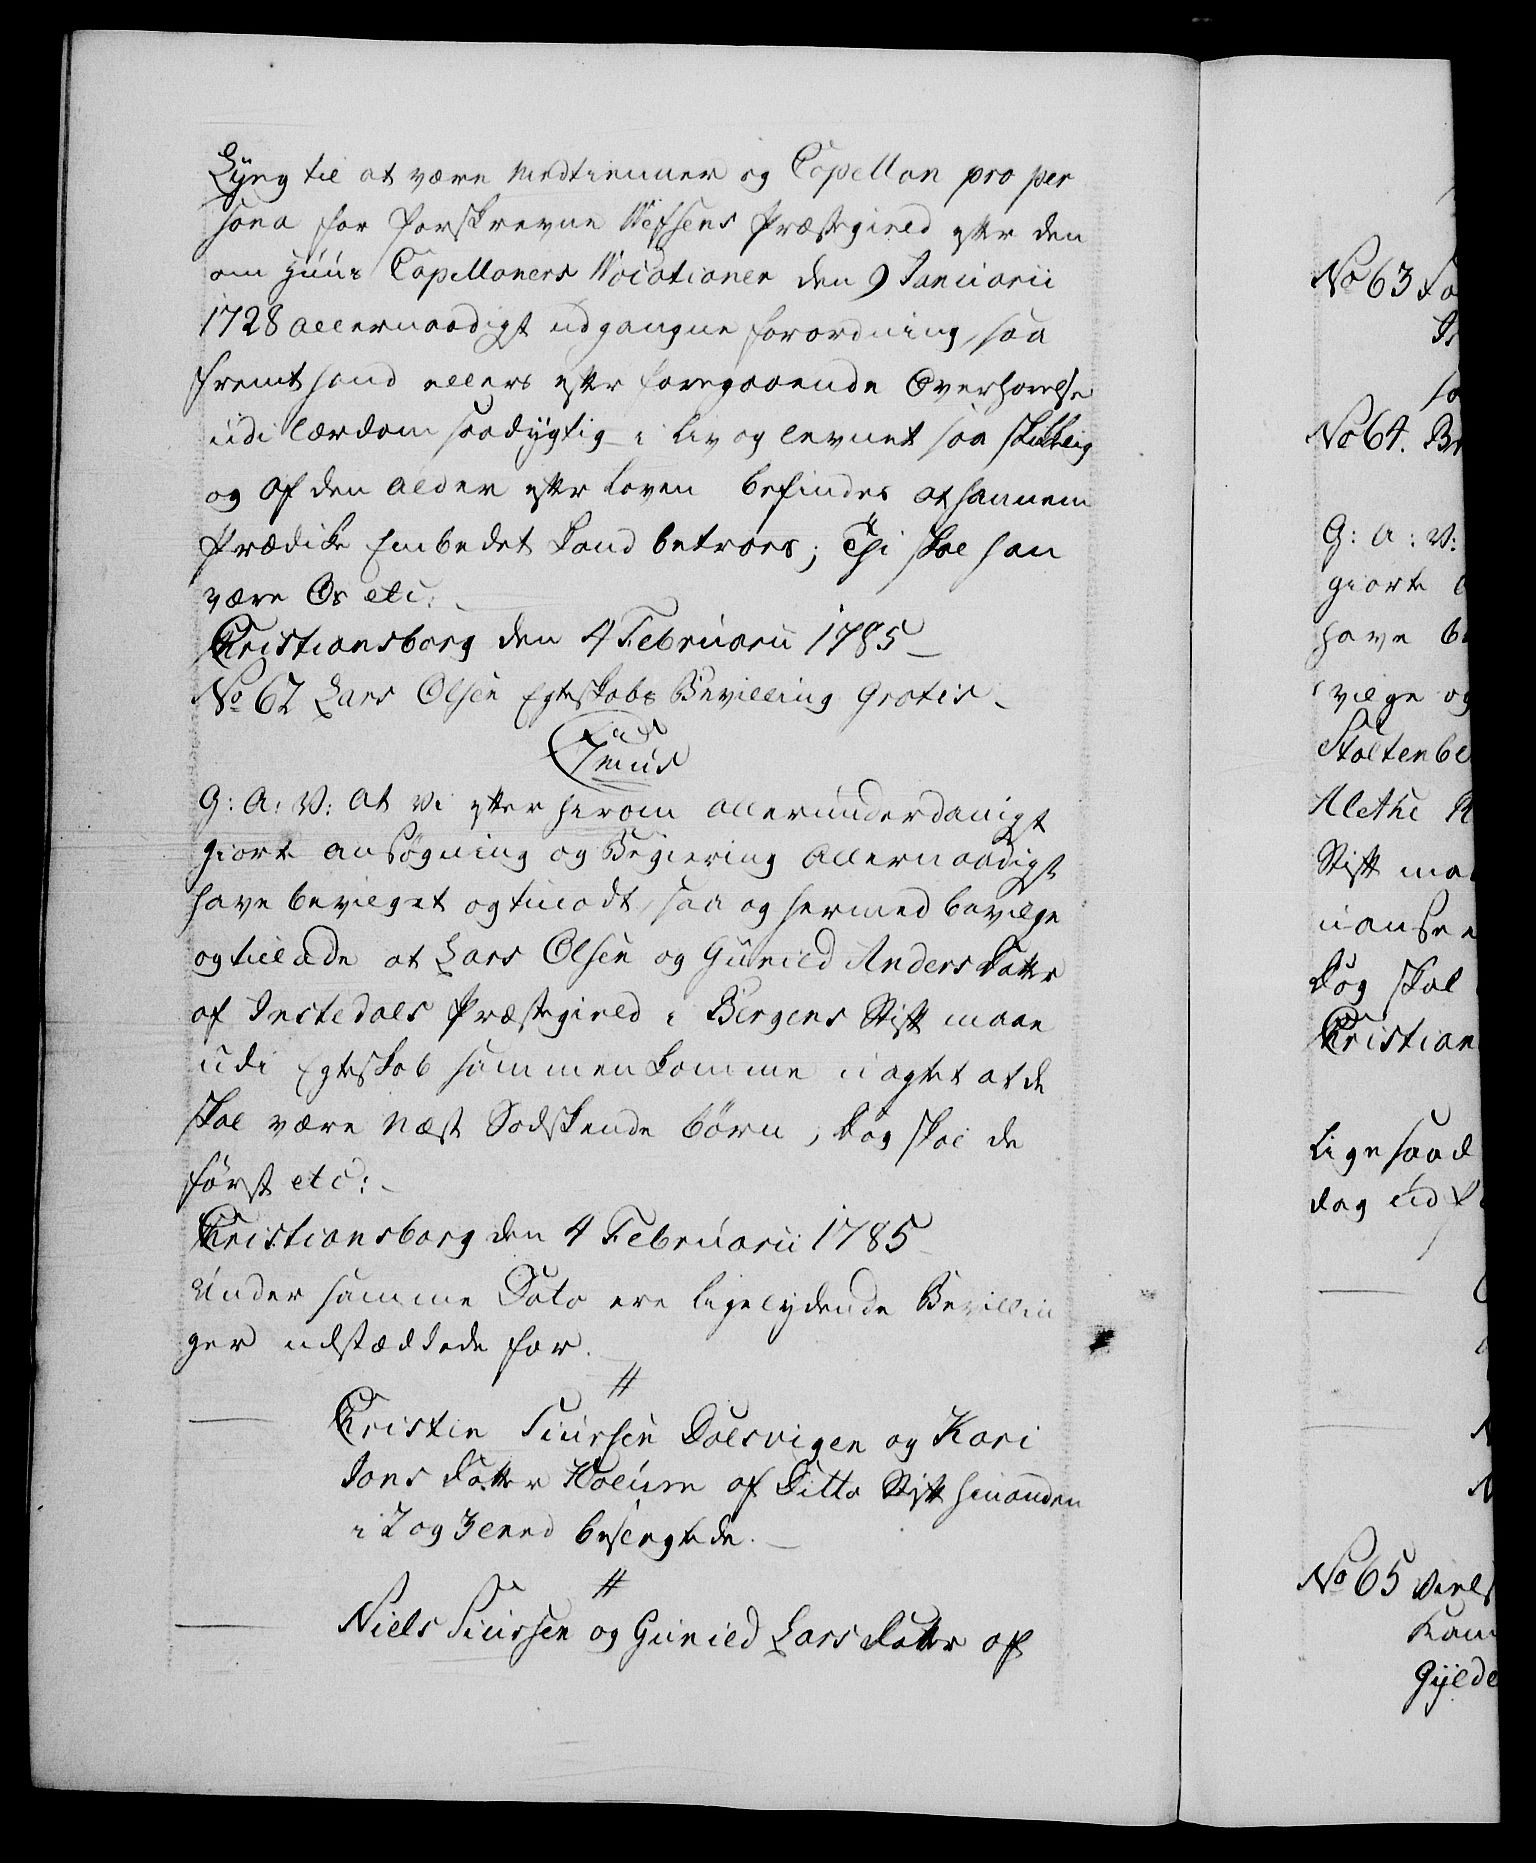 Lyng til at være Medtienner og Capellan pro per
sona for forskrevne Wefsens Præstegield efter den
om Huus Capellaners Vocationer den 9 Januarii
1728 allernaadigst udgangne forordning, saa
fremt hand ellers efter foregaaende Overhørelse
udi lærdom saa dygtig i liv og levnet saa skikkelig
og af den alder efter loven befindes at hannem
Prædike Embedet kand betroes; Thi skal han
være Os etc:
Christiansborg den 4 Februarii 1785
No 62 Lars Olsen Egteskabs Bevilling Gratis
G: A: V: at Vi efter herom allerunderdanigst
giorte ansøgning og Begiering Allernaadigst
have bevilget og tilladt, saa og hermed bevilge
og tillade at Lars Olsen og Gunild Anders Datter
af Justedals Præstegield i Bergens Stift maae
udi Egteskab sammenkomme uagtet at de
skal være Næst Sødskende børn, dog skal de
først etc:
Christiansborg den 4 Februarii 1785
Under samme Dato ere ligelydende Bevillin
ger udstædede for.
//
Christen Siursen Dalsvigen og Kari
Jons Datter af Ditto Stift hinanden
i 2 og 3 leed beslegtede.
//
Niels Siursen og Gunild Lars Datter af
No 63
No 64.
G: A: V:
giorte
have
vilge og
Stoltenbe
Alethe
Stift
uanse
dog skal
Christian
Ligesaad
dag ud
No 65
Gylde